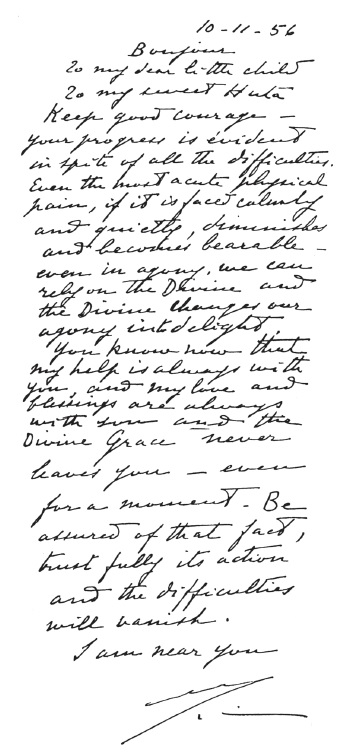 10-11-56
Bonjour
To my dear little child
To my sweet Huta
Keep good courage –
your progress is evident
in spite of all the difficulties.
Even the most acute physical
pain, if it is faced calmly
and quietly, diminishes
and becomes bearable –
even in agony, we can
rely on the Divine and
the Divine changes our
agony into delight.
You know now that
my help is always with
you, and my love and
blessings are always
with you and the
Divine Grace never
leaves you – even
for a moment. Be
assured of that fact,
trust fully its action
and the difficulties
will vanish.
I am near you